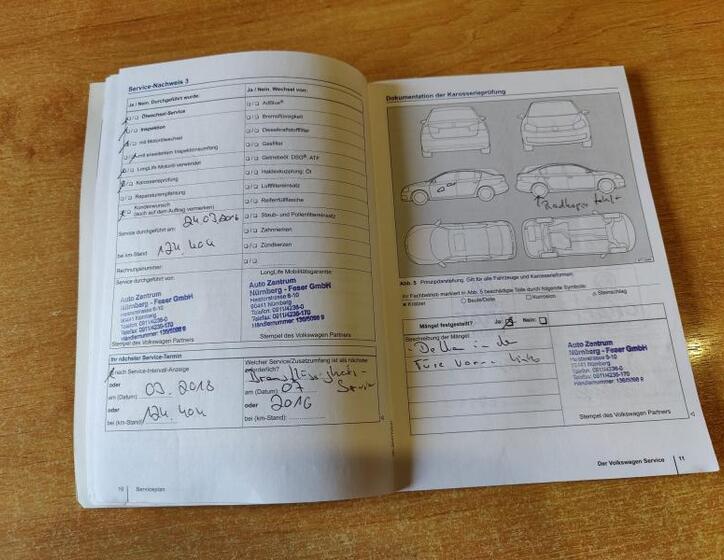 Service-Nachweis 3
Ja / Nein. Durchgeführt wurde:
Ölwechsel-Service
Inspektion
mit Motorölwechsel
mit erweitertem Inspektionsumfang
LongLife-Motoröl verwendet
Karosserieprüfung
Reparaturempfehlung
Kundenwunsch
(auch auf dem Auftrag vermerken)
Service durchgeführt am:
bei km-Stand
124.404
Rechnungsnummer:
Service durchgeführt von:
Auto Zentrum
Nürnberg - Feser GmbH
Heisterstrasse 6-10
90441 Nürnberg
Telefon: 0911/4236-0
Telefax: 0911/4236-170
Stempel des Volkswagen Partners
Ja / Nein. Wechsel von:
AdBlue®
Bremsflüssigkeit
Dieselkraftstofffilter
Gasfilter
Getriebeöl: DSG®, ATF
Haldexkupplung: Öl
Luftfiltereinsatz
Reifenfüllflasche
Staub- und Pollenfiltereinsatz
Zahnriemen
Zündkerzen
LongLife Mobilitätsgarantie:
Auto Zentrum
Nürnberg - Feser GmbH
Heisterstrasse 6-10
90441 Nürnberg
Telefon: 0911/4236-0
Telefax: 0911/4236-170
Stempel des Volkswagen Partners
Ihr nächster Service-Termin
nach Service-Intervall-Anzeige
oder
am (Datum) 03. 2018
oder
bei (km-Stand) 124.404
Welcher Service/Zusatzumfang ist als nächster
erforderlich?
Bremsflüssigkeits-
Service
am (Datum) 07
oder 2016
bei (km-Stand):
10 Serviceplan
Dokumentation der Karosserieprüfung
Radkappe fehlt
Abb. 5 Prinzipdarstellung. Gilt für alle Fahrzeuge und Karosserieformen.
Ihr Fachbetrieb markiert in Abb. 5 beschädigte Teile durch folgende Symbole:
× Kratzer ○ Beule/Delle □ Korrosion △ Steinschlag
Mängel festgestellt? Ja: Nein:
Beschreibung der Mängel:
- Delle in der
Türe vorne links
Auto Zentrum
Nürnberg - Feser GmbH
Heisterstrasse 6-10
90441 Nürnberg
Telefon: 0911/4236-0
Telefax: 0911/4236-170
Stempel des Volkswagen Partners
Der Volkswagen Service 11